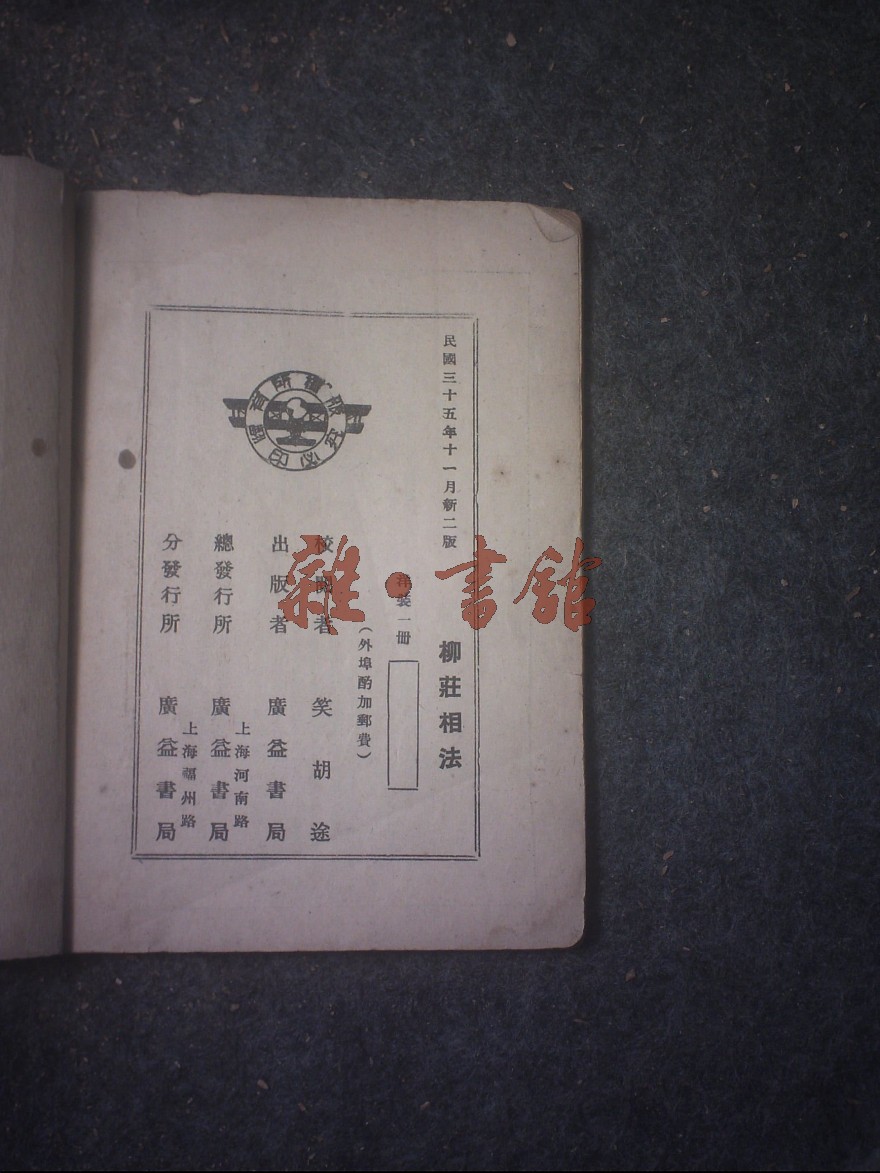 民國三十五年十一月新二版
柳莊相法
洋裝一冊
（外埠酌加郵費）
校閱者 笑胡途
出版者 廣益書局
上海河南路
總發行所 廣益書局
上海福州路
分發行所 廣益書局
雜·書館